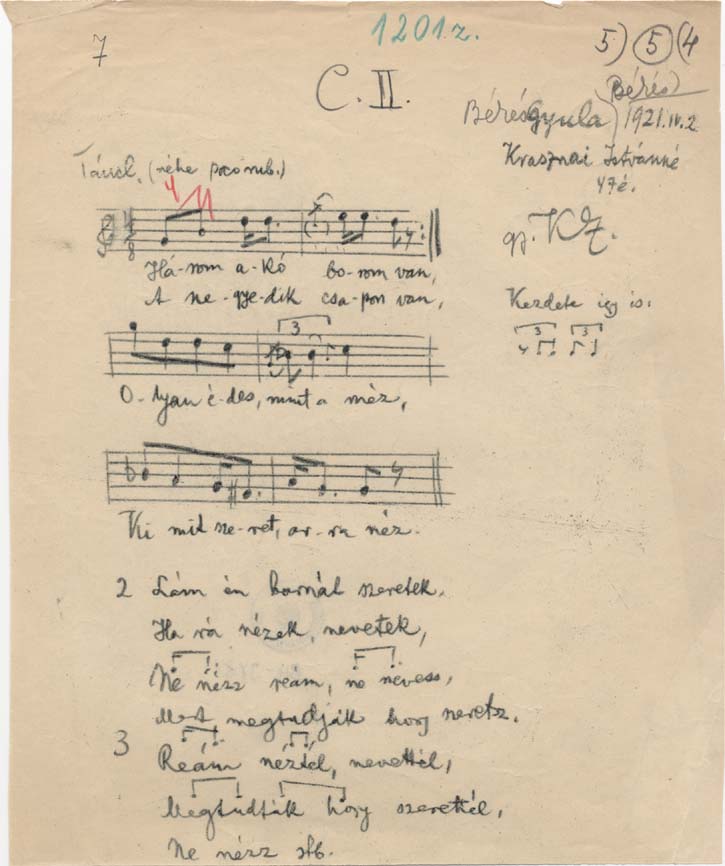 7
1201z.
5) 5 (4
C. II.
Bérés
Bérés Gyula 1921. IV. 2
Krasznai Istvánné
47é.
gy. KZ.
Táncl. (néhe poco rub.)
4
Há-rom a-kó bo-rom van,
A ne-gye-dik csa-pon van,
Kezdete így is:
3 3
3
O-lyan é-des, mint a méz,
Ki mit sze-ret, ar-ra néz.
2 Lám én barnát szeretek,
Ha rá nézek, nevetek,
Ne nézz reám, ne nevess,
Mert megtudják hogy szeretsz.
3 Reám néztél, nevettél,
Megtudták hogy szerettél,
Ne nézz stb.